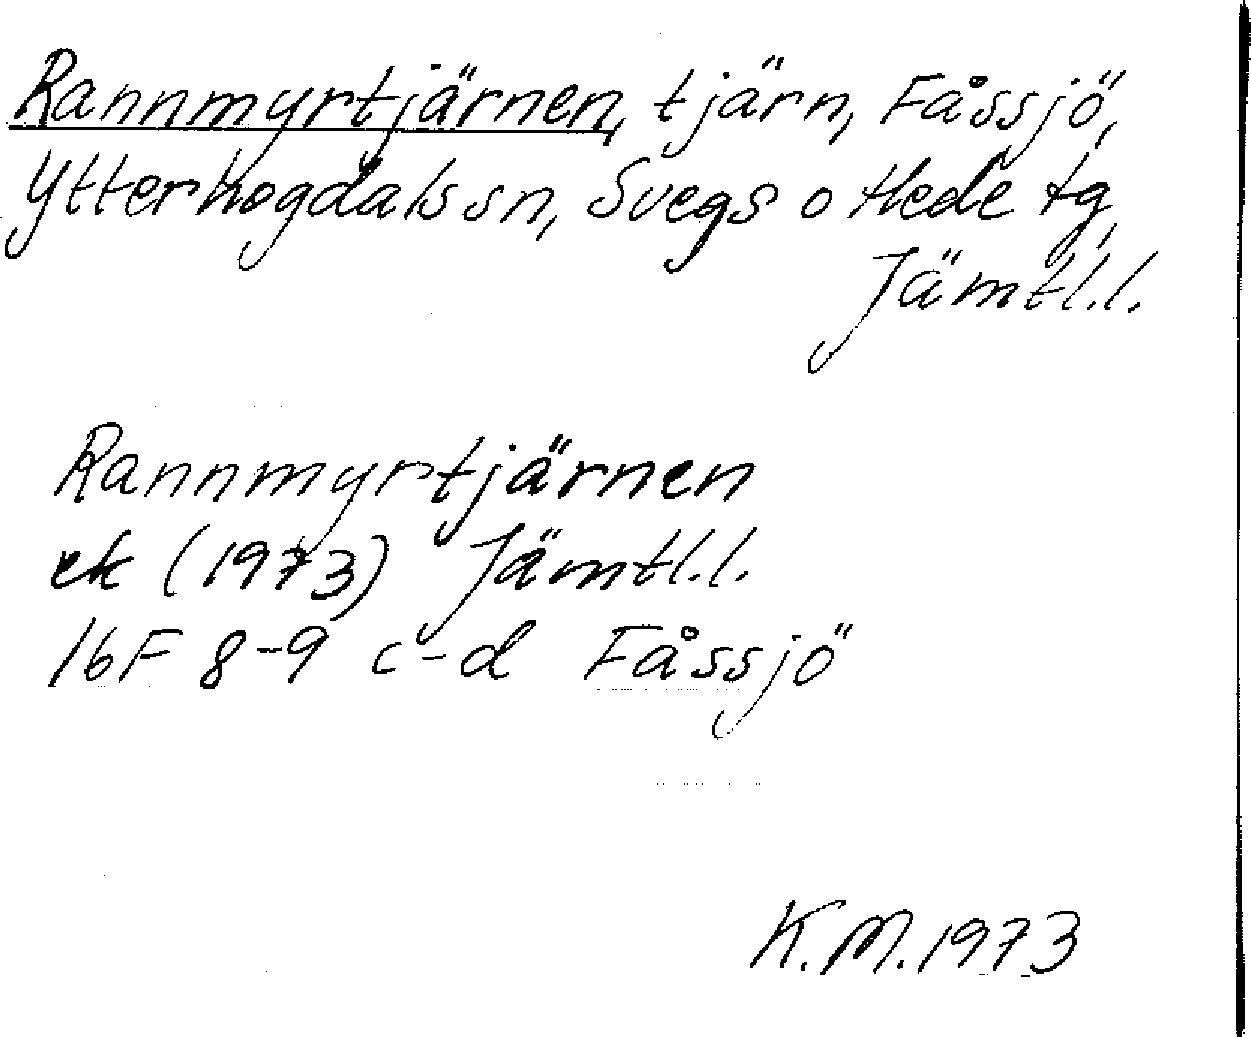 Rannmyrtjärnen, tjärn, Fåssjö,
Ytterhogdals sn, Svegs o Hede tg,
Jämtl.l.
Rannmyrtjärnen
ek (1973) Jämtl.l.
16F 8-9 c-d Fåssjö
K.M.1973